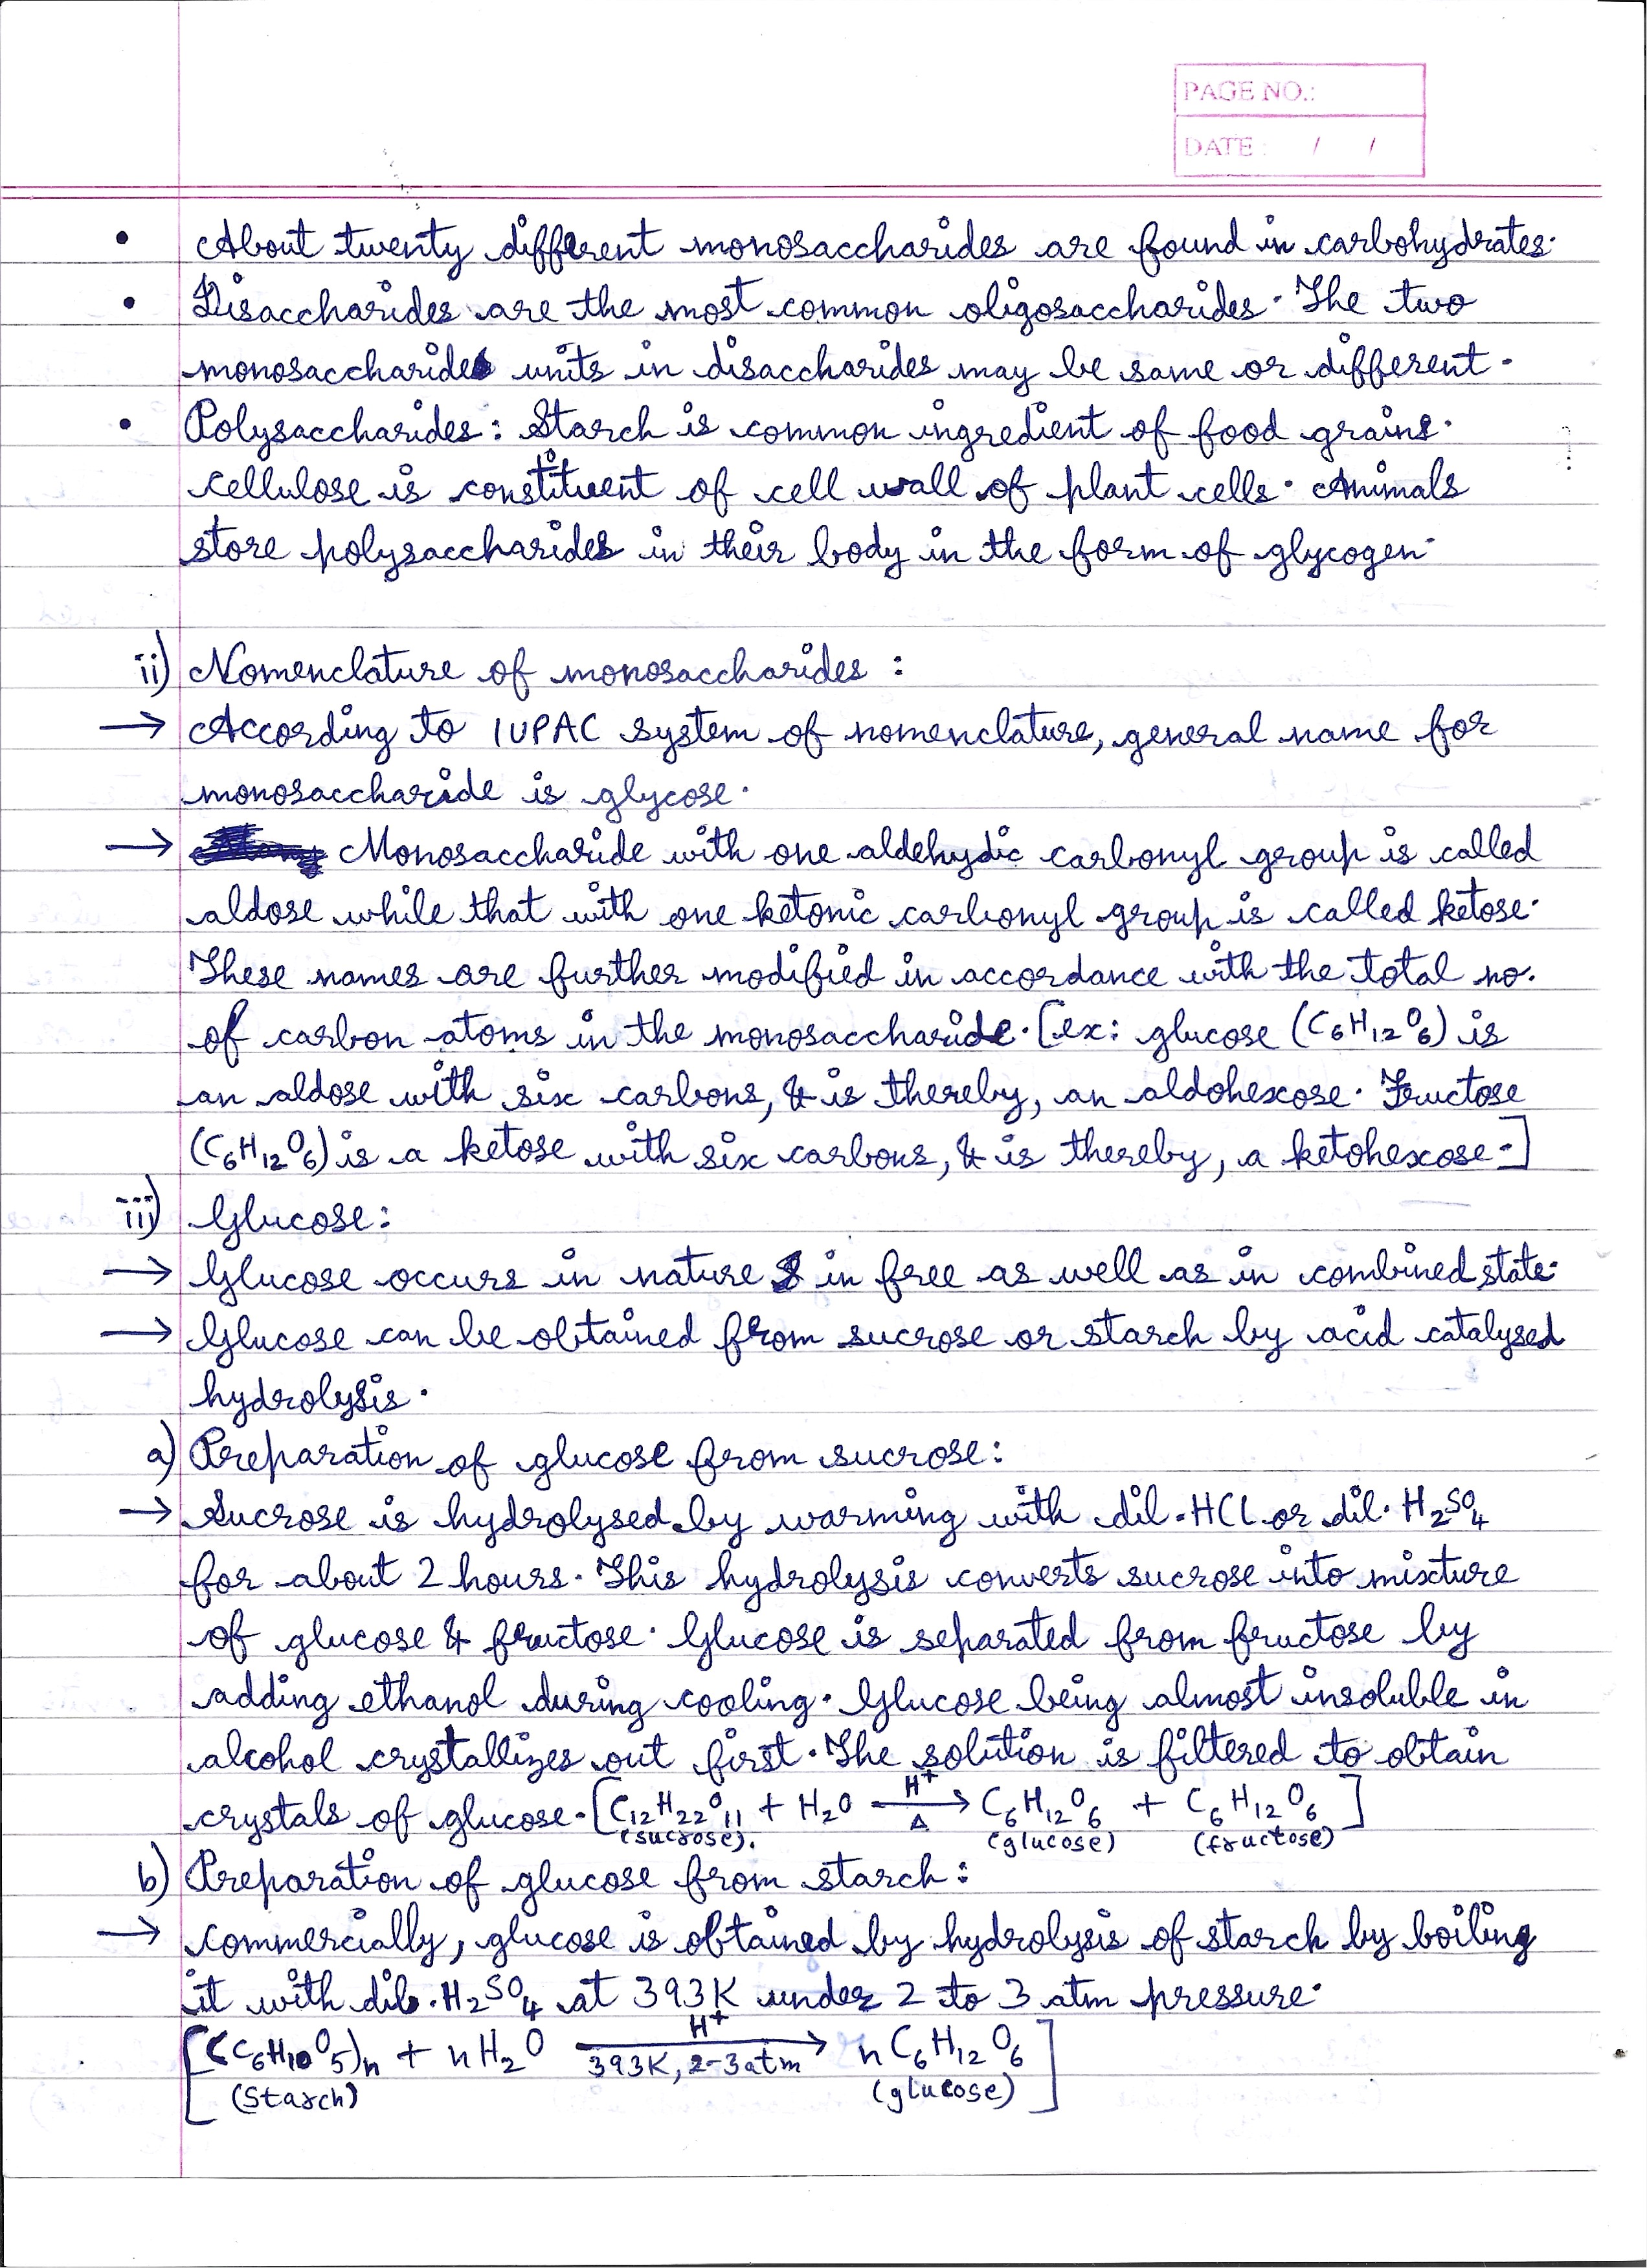 PAGE NO.:
DATE : / /
• About twenty different monosaccharides are found in carbohydrates.
• Disaccharides are the most common oligosaccharides. The two
monosaccharides units in disaccharides may be same or different.
• Polysaccharides: Starch is common ingredient of food grains.
cellulose is constituent of cell wall of plant cells. Animals
store polysaccharides in their body in the form of glycogen.
ii) Nomenclature of monosaccharides :
→ According to IUPAC system of nomenclature, general name for
monosaccharide is glycose.
→ Monosaccharide with one aldehydic carbonyl group is called
aldose while that with one ketonic carbonyl group is called ketose.
These names are further modified in accordance with the total no.
of carbon atoms in the monosaccharide. [ex: glucose (C₆H₁₂O₆) is
an aldose with six carbons, & is thereby, an aldohexose. Fructose
(C₆H₁₂O₆) is a ketose with six carbons, & is thereby, a ketohexose.]
iii) Glucose:
→ Glucose occurs in nature in free as well as in combined state.
→ Glucose can be obtained from sucrose or starch by acid catalysed
hydrolysis.
a) Preparation of glucose from sucrose:
→ Sucrose is hydrolysed by warming with dil. HCl or dil. H₂SO₄
for about 2 hours. This hydrolysis converts sucrose into mixture
of glucose & fructose. Glucose is separated from fructose by
adding ethanol during cooling. Glucose being almost insoluble in
alcohol crystallizes out first. The solution is filtered to obtain
H⁺
crystals of glucose. [C₁₂H₂₂O₁₁ + H₂O → C₆H₁₂O₆ + C₆H₁₂O₆]
(sucrose). Δ (glucose) (fructose)
b) Preparation of glucose from starch:
→ commercially, glucose is obtained by hydrolysis of starch by boiling
it with dil. H₂SO₄ at 393K under 2 to 3 atm pressure.
H⁺
[(C₆H₁₀O₅)n + nH₂O → nC₆H₁₂O₆]
393K, 2-3atm
(Starch) (glucose)